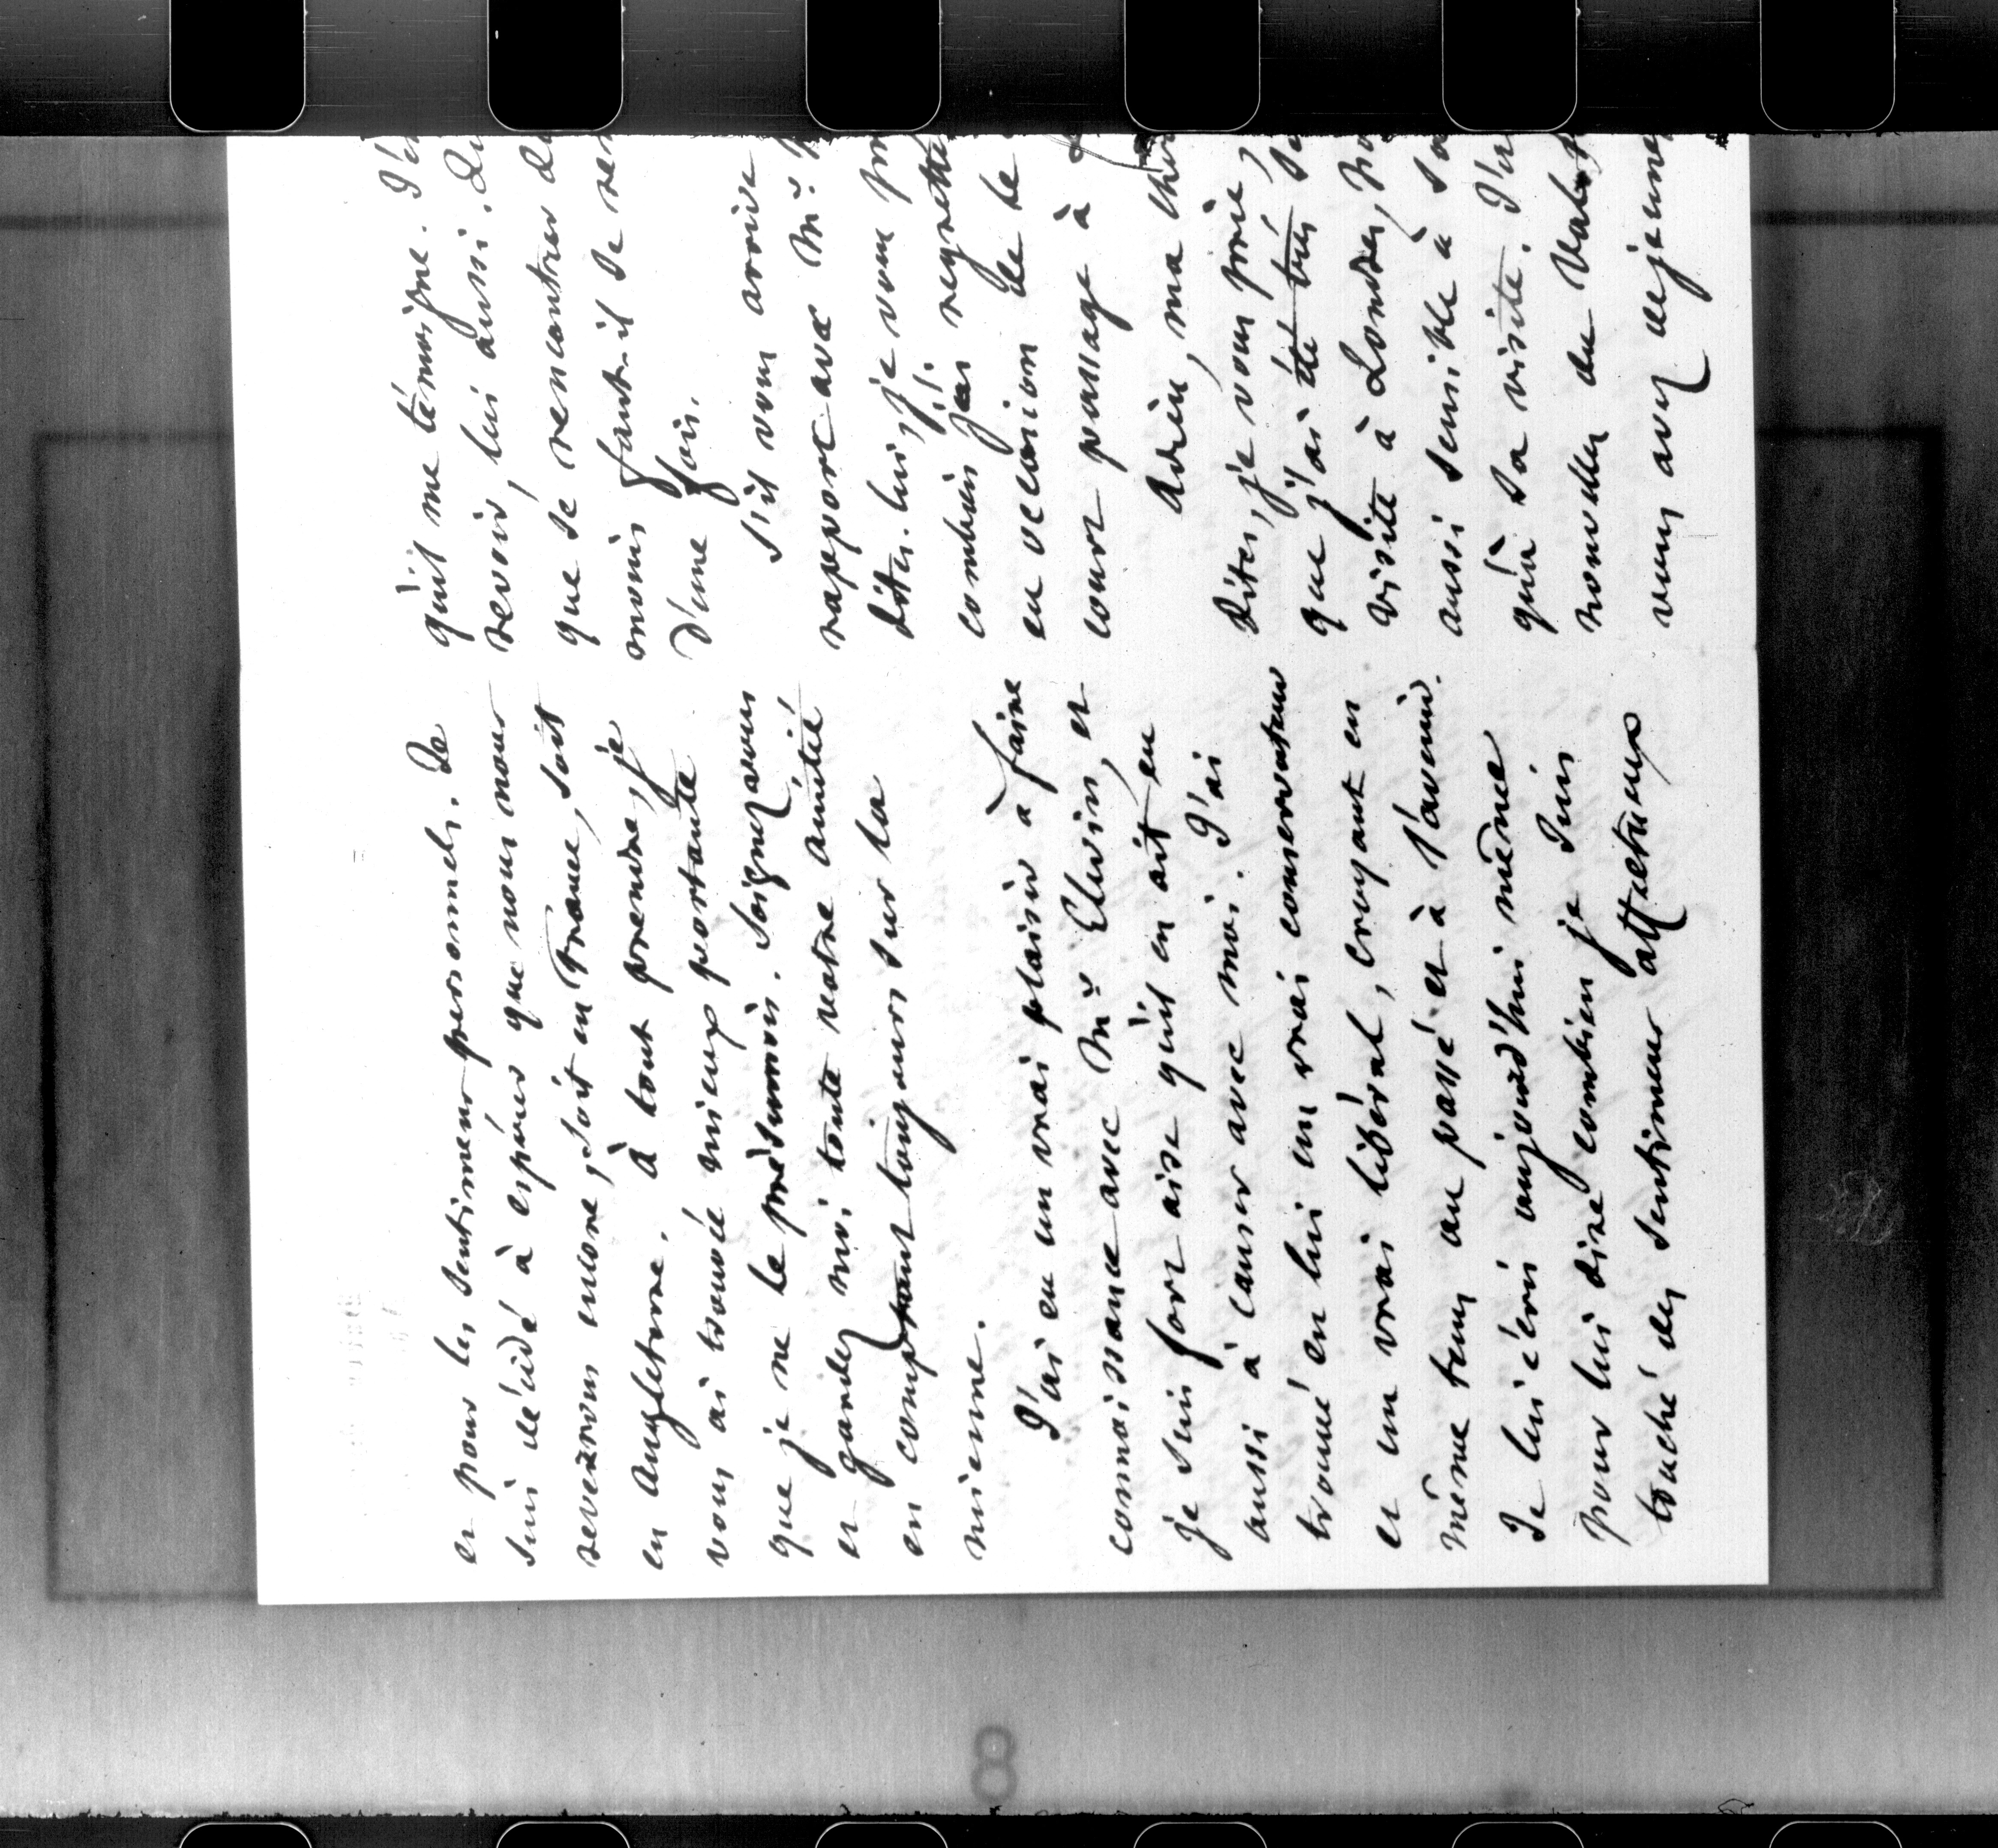 et pour les sentimens personnels. Je
suis décidé à espérer que nous nous
reverrons encore, soit en France, soit
en Angleterre. à tout prendre, je
vous ai trouvée mieux portante
que je ne le présumois. Soignez vous
et gardez moi toute votre amitié
en comptant toujours sur la
mienne.
J'ai eu un vrai plaisir à faire
connoissance avec Mr Elwin, et
je suis fort aise qu'il en ait eu
aussi à causer avec moi. J'ai
trouvé en lui un vrai conservateur
et un vrai libéral, croyant en
même tems au passé et à l'avenir.
Je lui écris aujourd'hui même
pour lui dire combien je suis
touché des sentimens affectueux
qu'il me témoigne.
revoir, lui aussi.
que se rencontrer
moins faut-il se
d'une fois.
S'il vous arrive
rapport avec Mr.
dites-lui, je vous
combien j'ai regretté
en occasion de le
court passage à
Adieu, ma
Dites, je vous prie,
que j'ai été très
visite à Londres,
aussi sensible à
qu'à sa visite.
nouvelle du
vous avez déjeuné
8